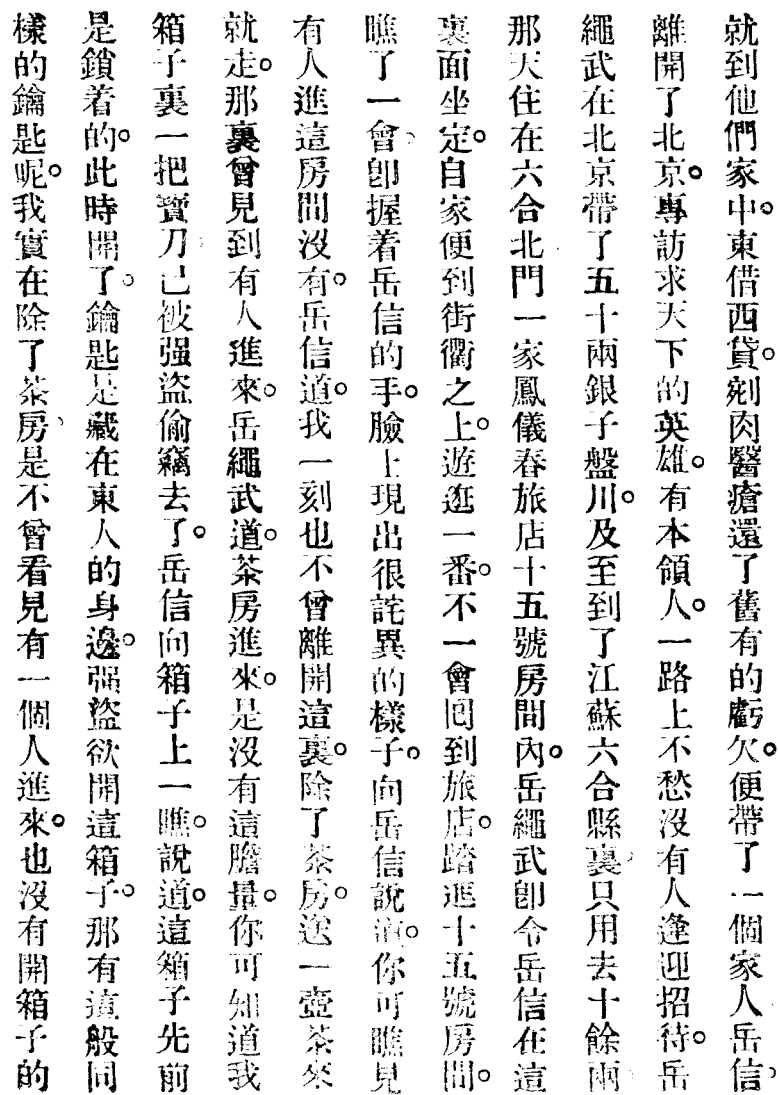 就到他們家中。東借西貸。剜肉醫瘡還了舊有的虧欠。便帶了一個家人岳信。
離開了北京。專訪求天下的英雄。有本領人。一路上不愁沒有人逢迎招待。岳
繩武在北京帶了五十兩銀子盤川。及至到了江蘇六合縣裏。只用去十餘兩
那天住在六合北門一家鳳儀春旅店十五號房間內。岳繩武卽令岳信在這
裏面坐定。自家便到街衢之上。遊逛一番。不一會囘到旅店。踏進十五號房間。
瞧了一會。卽握着岳信的手。臉上現出很詫異的樣子。向岳信說道。你可瞧見
有人進這房間沒有。岳信道。我一刻也不曾離開這裏。除了茶房。送一壺茶來
就走。那裏曾見到有人進來。岳繩武道。茶房進來。是沒有這膽量。你可知道我
箱子裏一把寶刀。已被强盜偷竊去了。岳信向箱子上一瞧。說道。這箱子先前
是鎖着的。此時開了。鑰匙是藏在東人的身邊。强盜欲開這箱子。那有這般同
樣的鑰匙呢。我實在除了茶房、是不曾看見有一個人進來。也沒有開箱子的